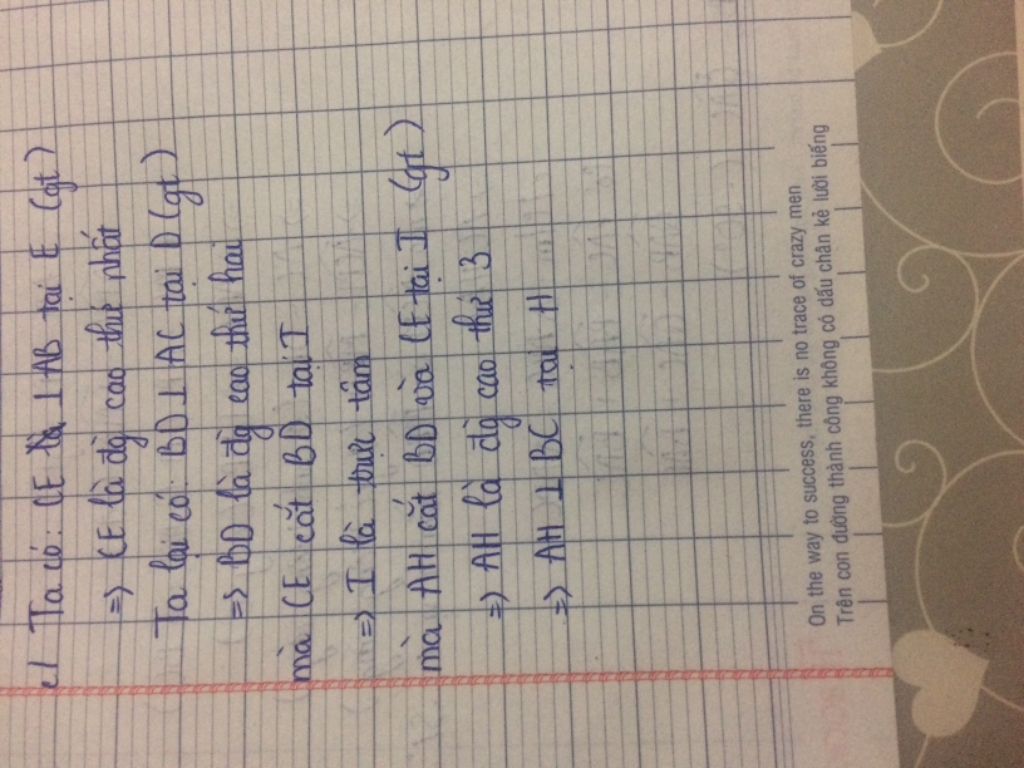 c/ Ta có: CE ⊥ AB tại E (gt)
=> CE là đg cao thứ nhất
Ta lại có: BD ⊥ AC tại D (gt)
=> BD là đg cao thứ hai
mà CE cắt BD tại I
=> I là trực tâm
mà AH cắt BD và CE tại I (gt)
=> AH là đg cao thứ 3
=> AH ⊥ BC tại H
On the way to success, there is no trace of crazy men
Trên con đường thành công không có dấu chân kẻ lười biếng